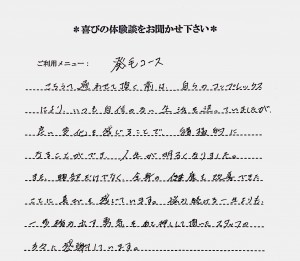 ＊喜びの体験談をお聞かせ下さい＊
ご利用メニュー： 発毛コース
こちらに通わせて頂く前は、自らのコンプレックス
により、いつも自信のない生活を送っていましたが、
良い変化を感じることで、積極的に
なることができ、人生が明るくなりました。
また、頭部だけでなく、全身の健康も改善できた
ことに喜びを感じています。
一歩踏み出す勇気を後押しして頂いたスタッフの
方々に感謝しています。